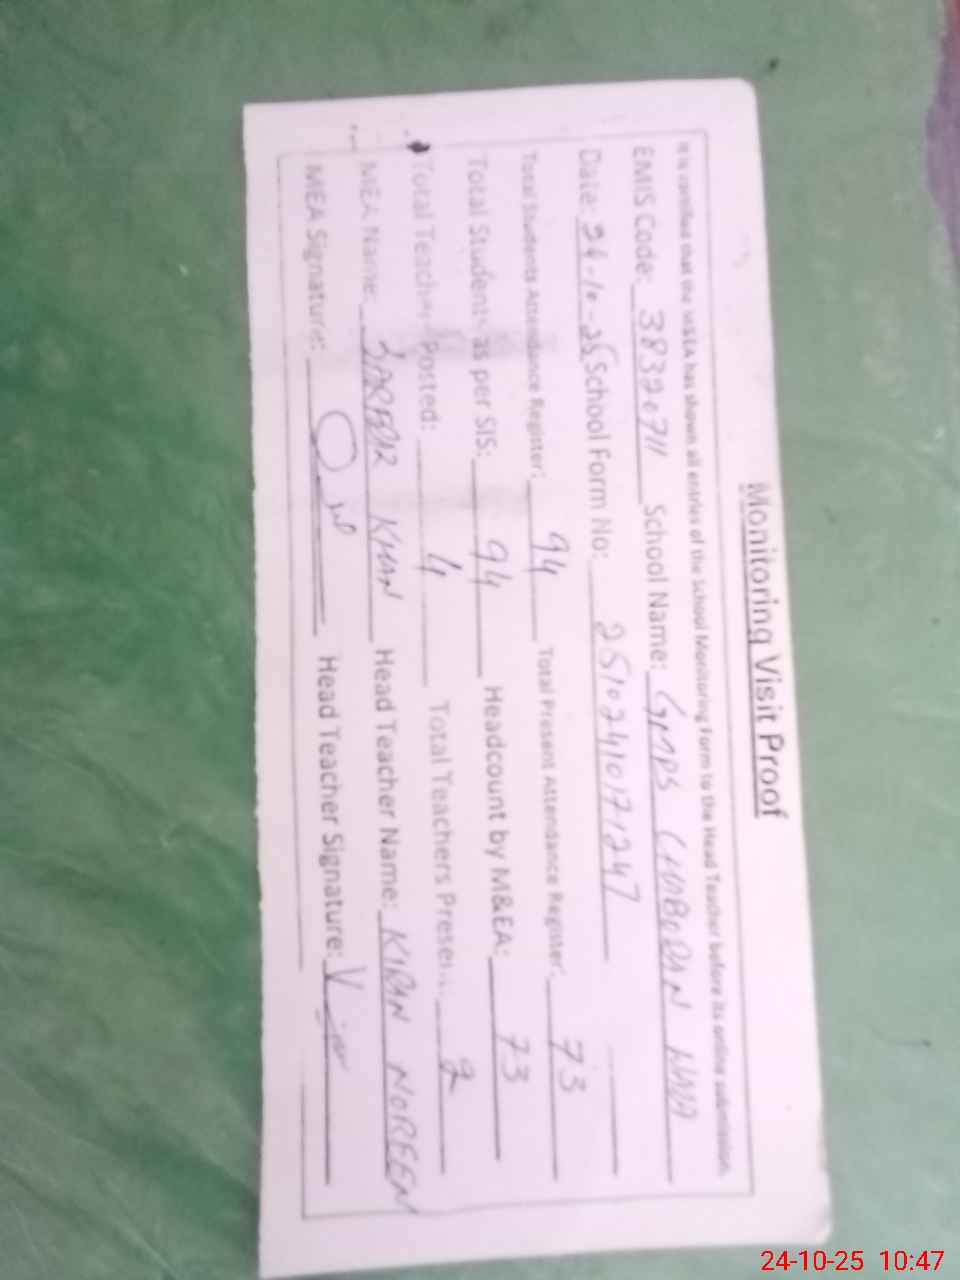 Monitoring Visit Proof
It is certified that the M&EA has shown all entries of the School Monitoring Form to the Head Teacher before its online submission.
EMIS Code: 38320711 School Name: GMPS
Date: 24-10-25 School Form No: 25102410171247
Total Students Attendance Register: 94 Total Present Attendance Register: 73
Total Students as per SIS: 94 Headcount by M&EA: 73
Total Teachers Posted: 4 Total Teachers Present: 2
MEA Name: KHAN Head Teacher Name: KIRAN NOREEN
MEA Signature: Head Teacher Signature:
24-10-25 10:47